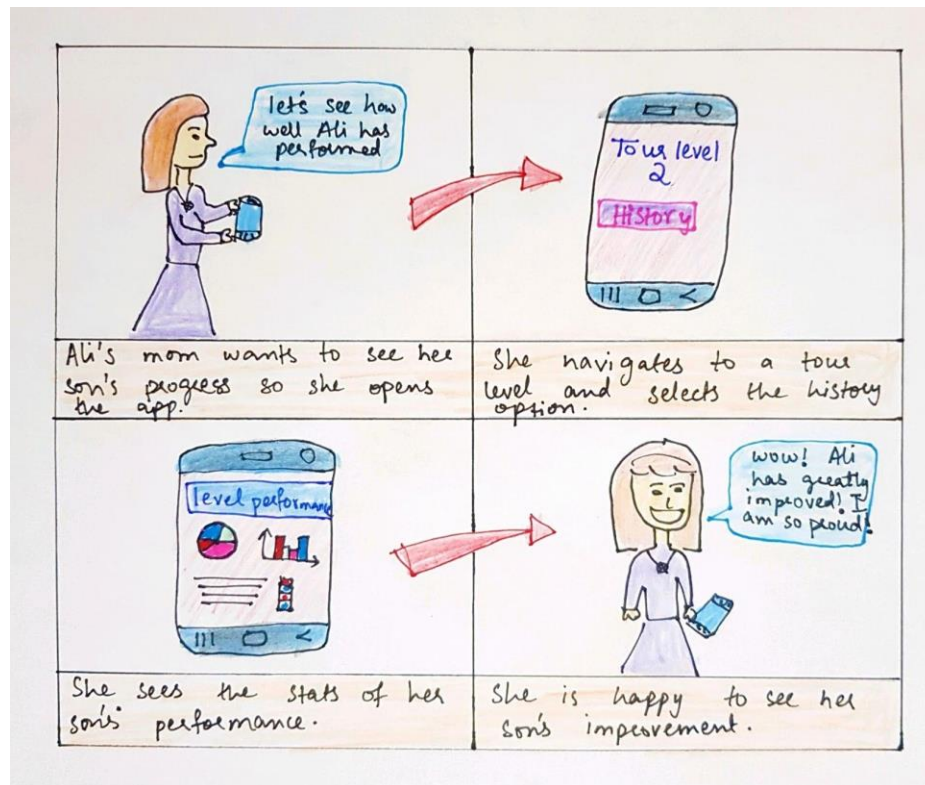 let's see how
well Ali has
performed
Tour level
2
History
Ali's mom wants to see her
son's progress so she opens
the app.
She navigates to a tour
level and selects the history
option.
level performance
wow! Ali
has greatly
improved! I
am so proud!
She sees the stats of her
son's performance.
She is happy to see her
son's improvement.